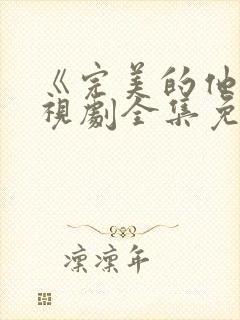 《完美的他
視劇全集免
凜凜年